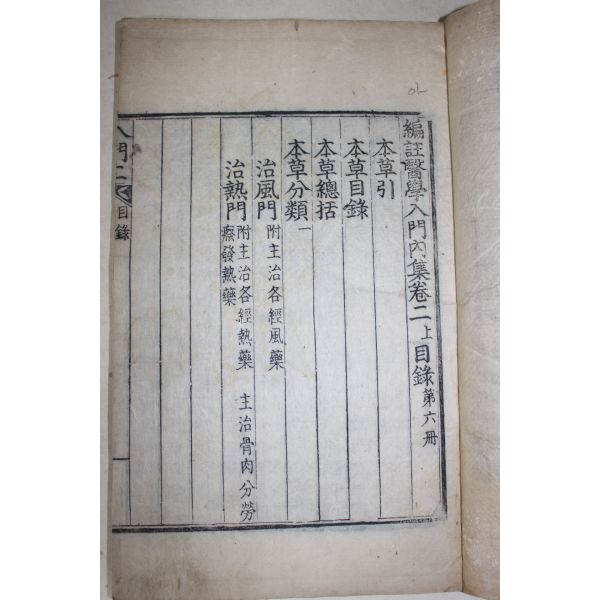 編註醫學入門內集卷二上目錄 第六册
本草引
本草目錄
本草總括
本草分類一
治風門 附主治各經風藥
治熱門 附主治各經熱藥 主治骨肉分勞
瘵發熱藥
入門二 目錄